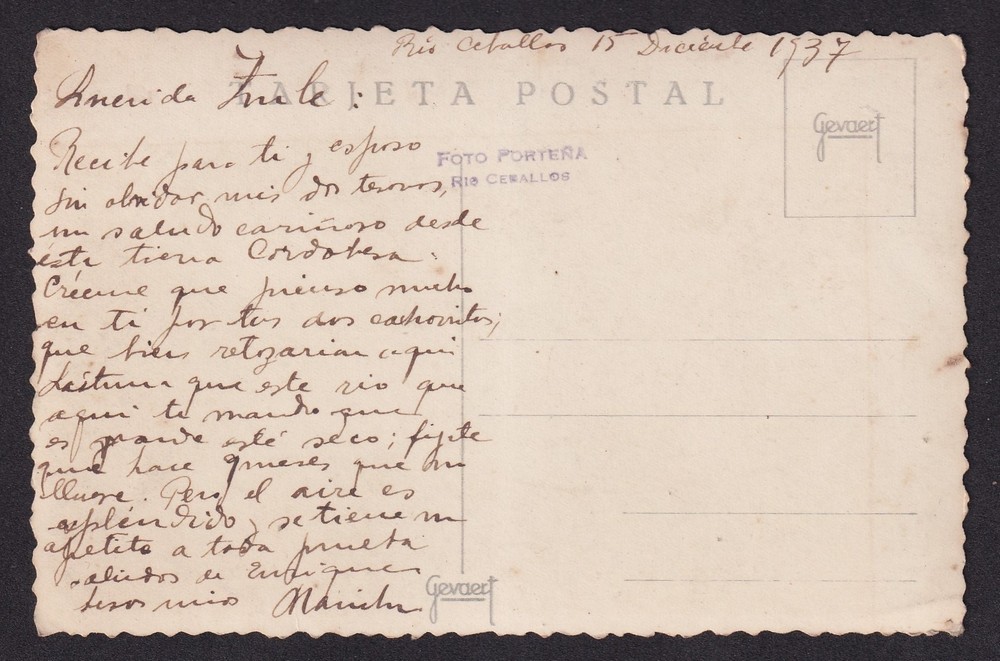 Rio Ceballos 15 Diciembre 1937
TARJETA POSTAL
Querida
Gevaert
FOTO PORTEÑA
RIO CEBALLOS
Recibe para ti y esposo
sin olvidar mis dos tesoros,
un saludo cariñoso desde
ésta tierra Cordobesa.
Créeme que pienso mucho
en ti por tus dos cachorritos;
que bien retozarian aqui
Lástima que este rio que
aqui te mando que
es grande esté seco; fijate
que hace 9 meses que no
llueve. Pero el aire es
espléndido y se tiene un
apetito a toda prueba
saludos de Enrique
besos mios
Gevaert